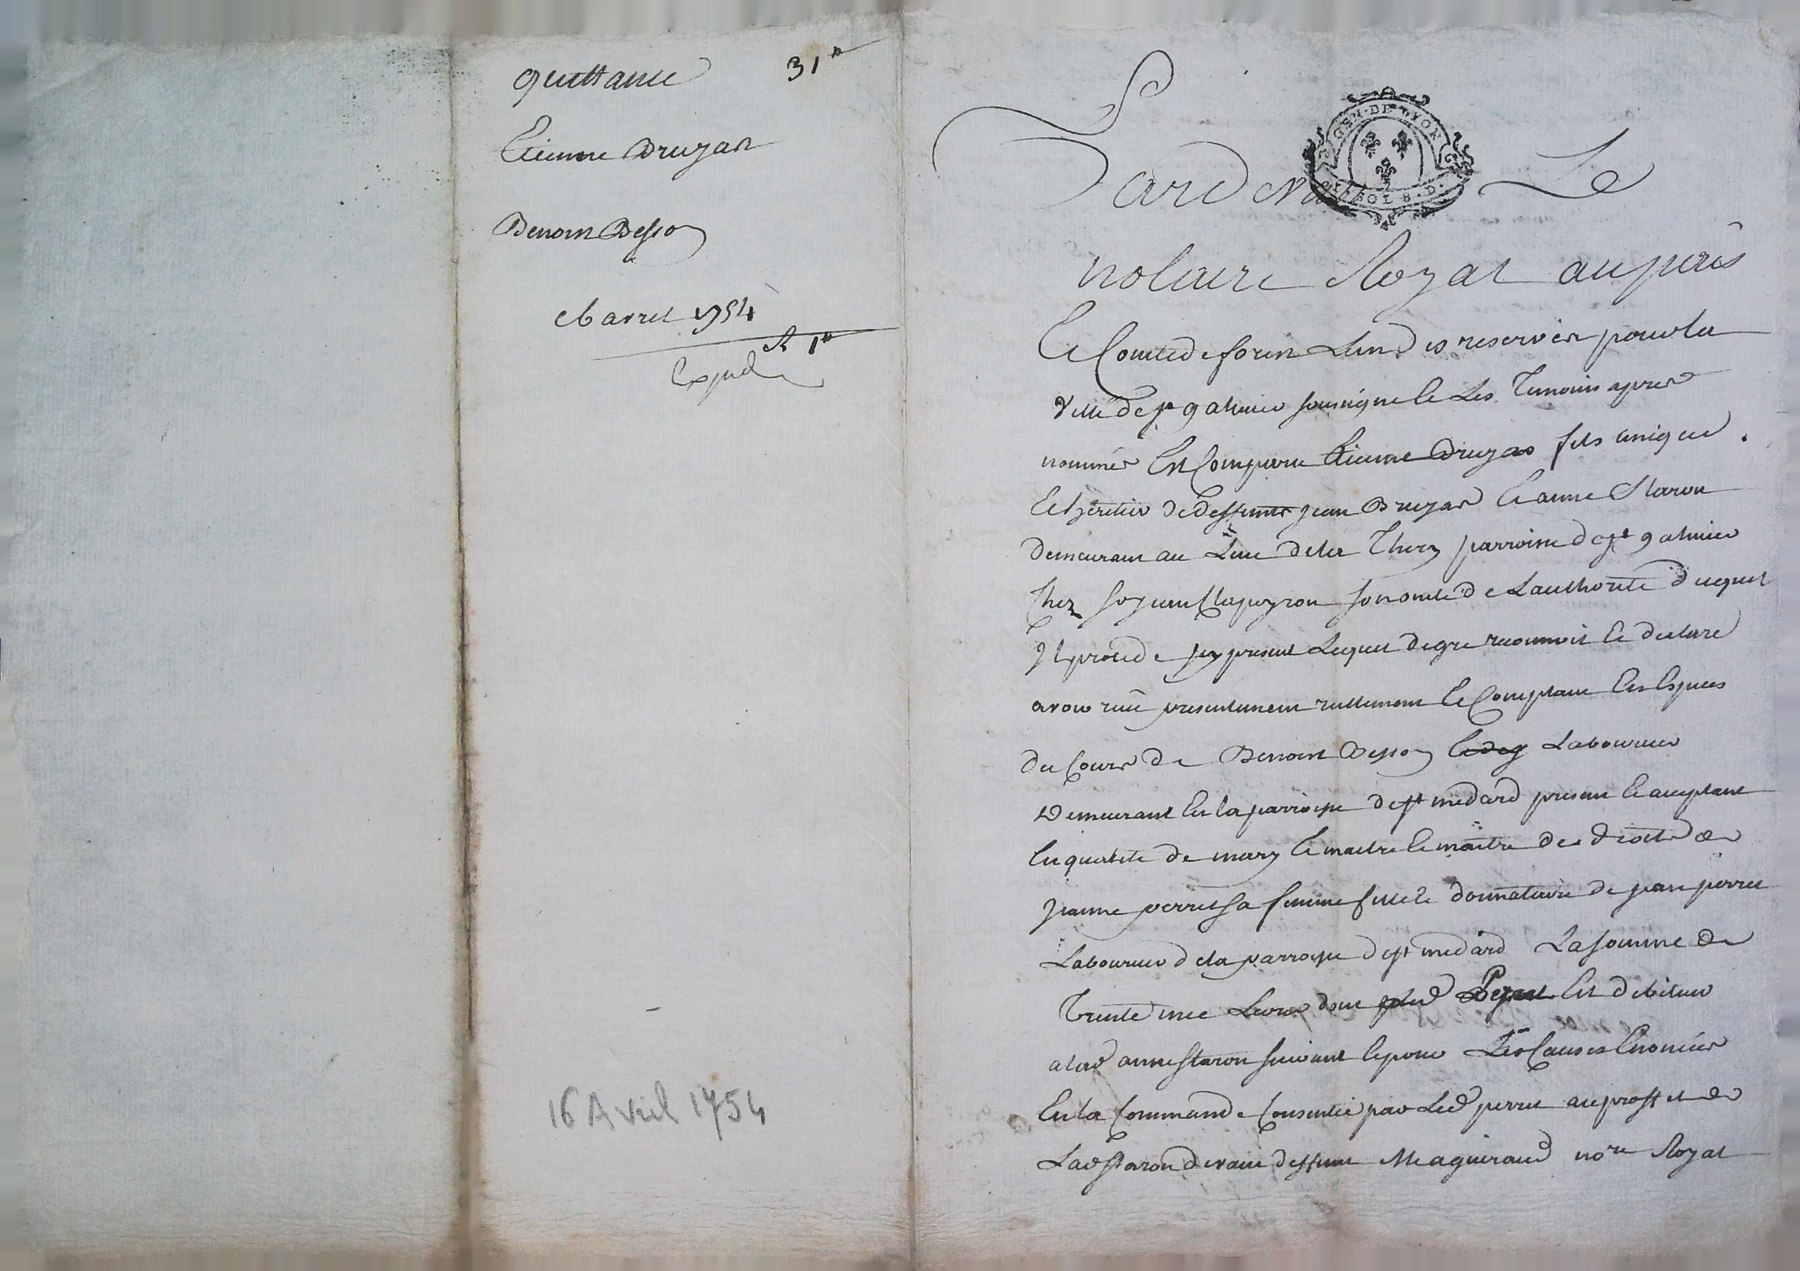 quittance 31ᵗᵗ
Etienne Druzar
Benoit Besson
16 avril 1754
Rt 1ᵗᵗ
Expedie
GEN. DE LYON
SOL 8. D.
Pardevant Le
notaire Royal au païs
Et Comté de forest Lun des reservés pour la
Ville de st galmier soussigné et Les Temoins apres
nommés Est Comparu Etienne Druzar fils unique
Et heritier de deffunts jean Druzar Et anne Staron
demeurant au Lieu de la Thery parroisse de st galmier
Chez sr jean Clapeyron son oncle de Lauthorité duquel
Il procede icy present Lequel de gre reconnoit Et declare
avoir reçu presentement reellement Et Comptant En Espèces
du Cours de Benoit Besson Laboureur
Demeurant En la parroisse de st medard present Et acceptant
En qualité de mary Et maitre Et maitre des droits de
jeanne perret sa femme fille Et donnataire de jean perret
Laboureur de la parroisse de st medard La somme de
Trente une Livre dont led Perret Est debiteur
a lad anne staron suivant Et pour Les Causes Enoncées
En la Commande Consentie par Led perret au proffit de
Lad staron devant deffunt Me aguiraud nore Royal
16 Avril 1754